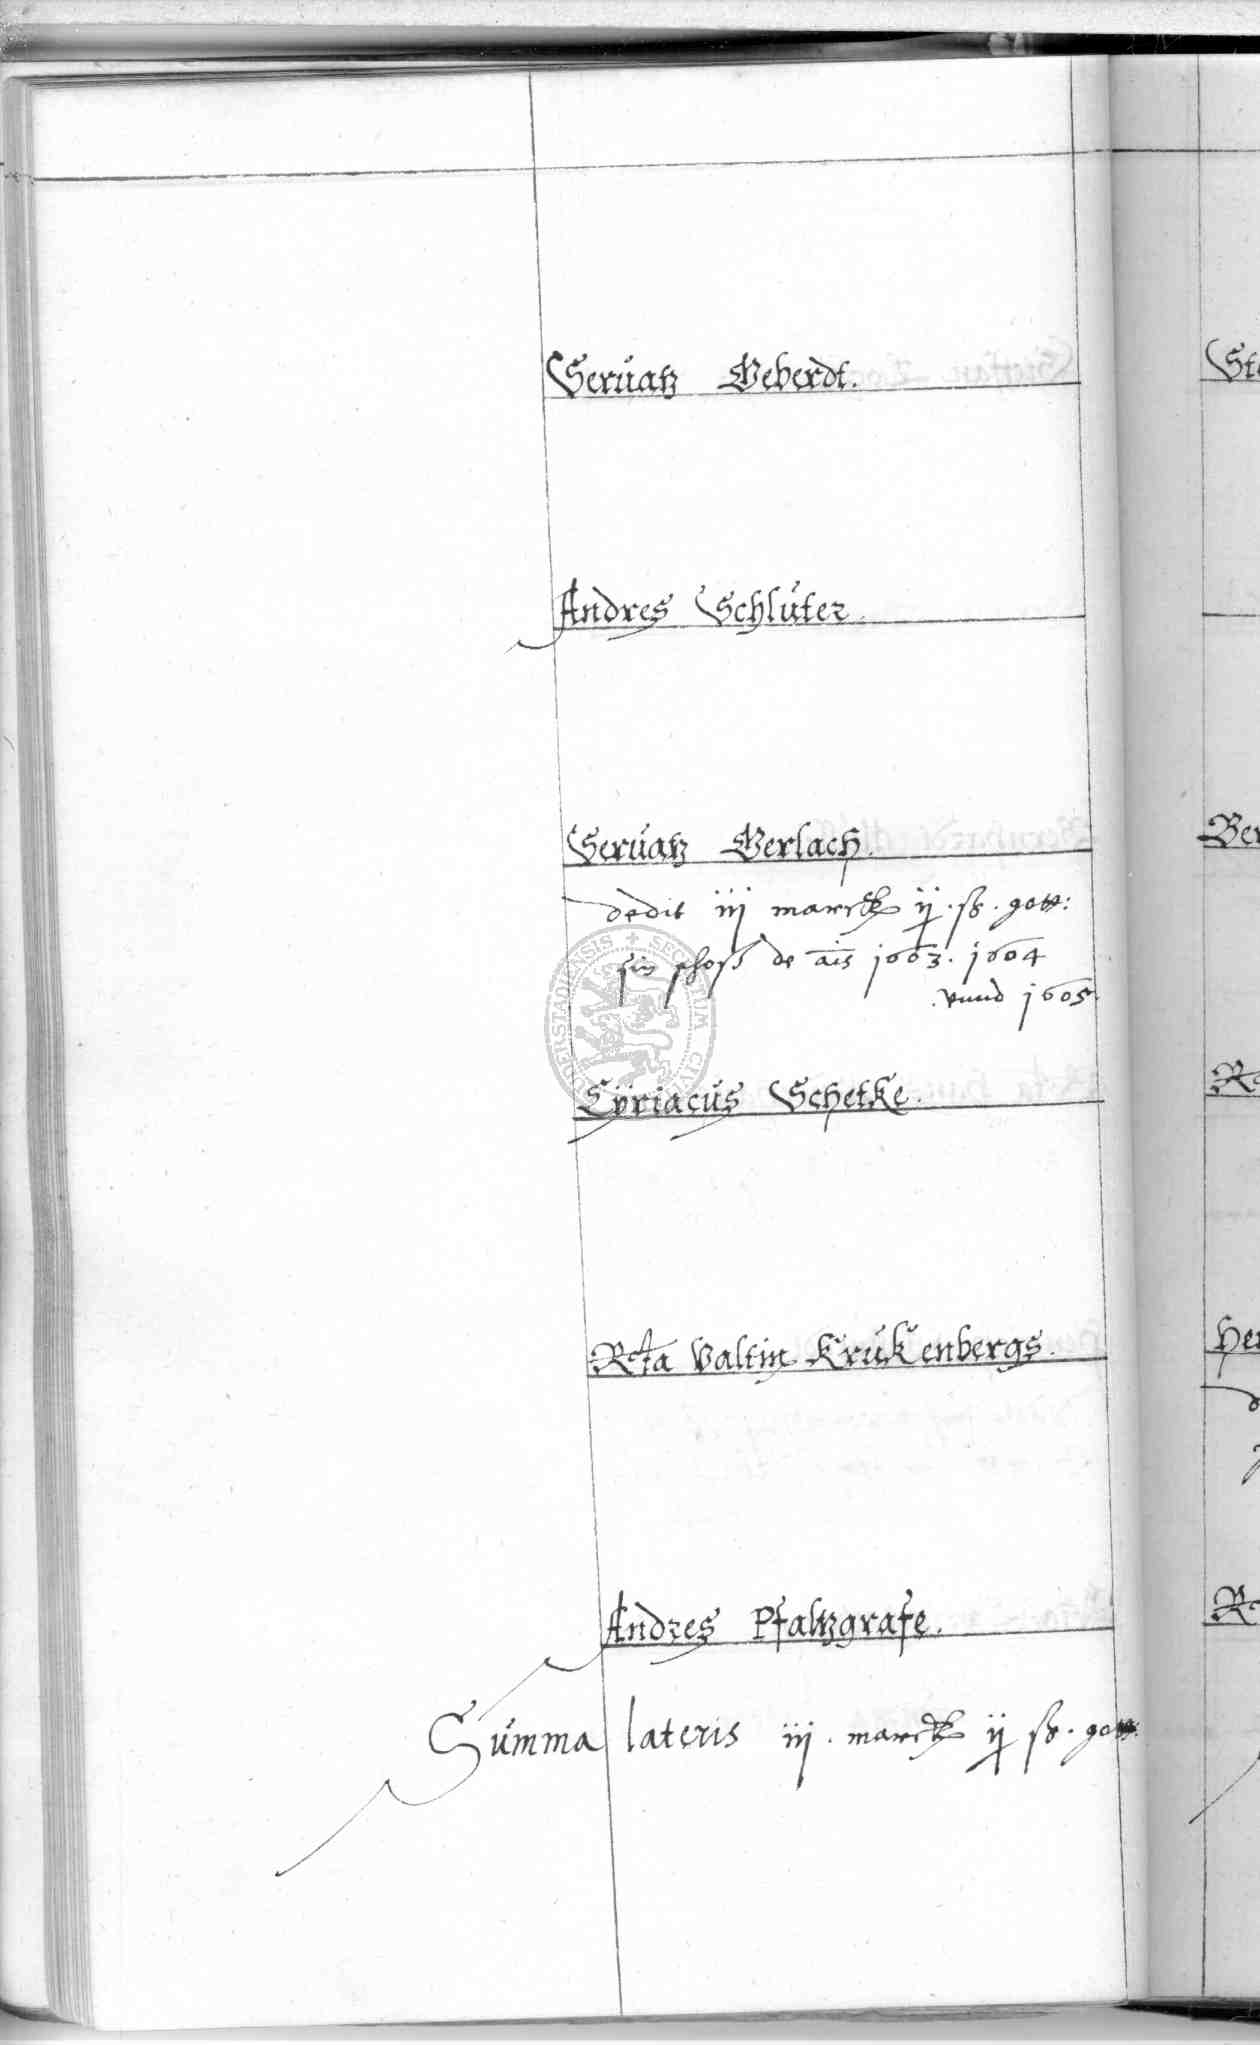 Seruatz Geberdt.
Andres Schluter.
Seruatz Gerlach.
dedit iij marck ij. ß. gott:
sin schoß de ais 1603. 1604
vnnd 1605.
Cÿriacus Schetke.
Rcta Valtin Krukenbergs.
Andres Pfaltzgrafe.
Summa lateris iij. marck ij ß. gott:
St
Ber
Re
Her
d
Re